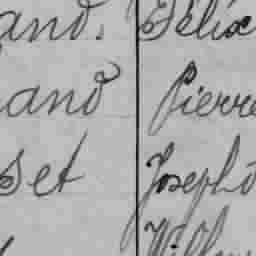 and. Félix
and Pierre
set Joseph